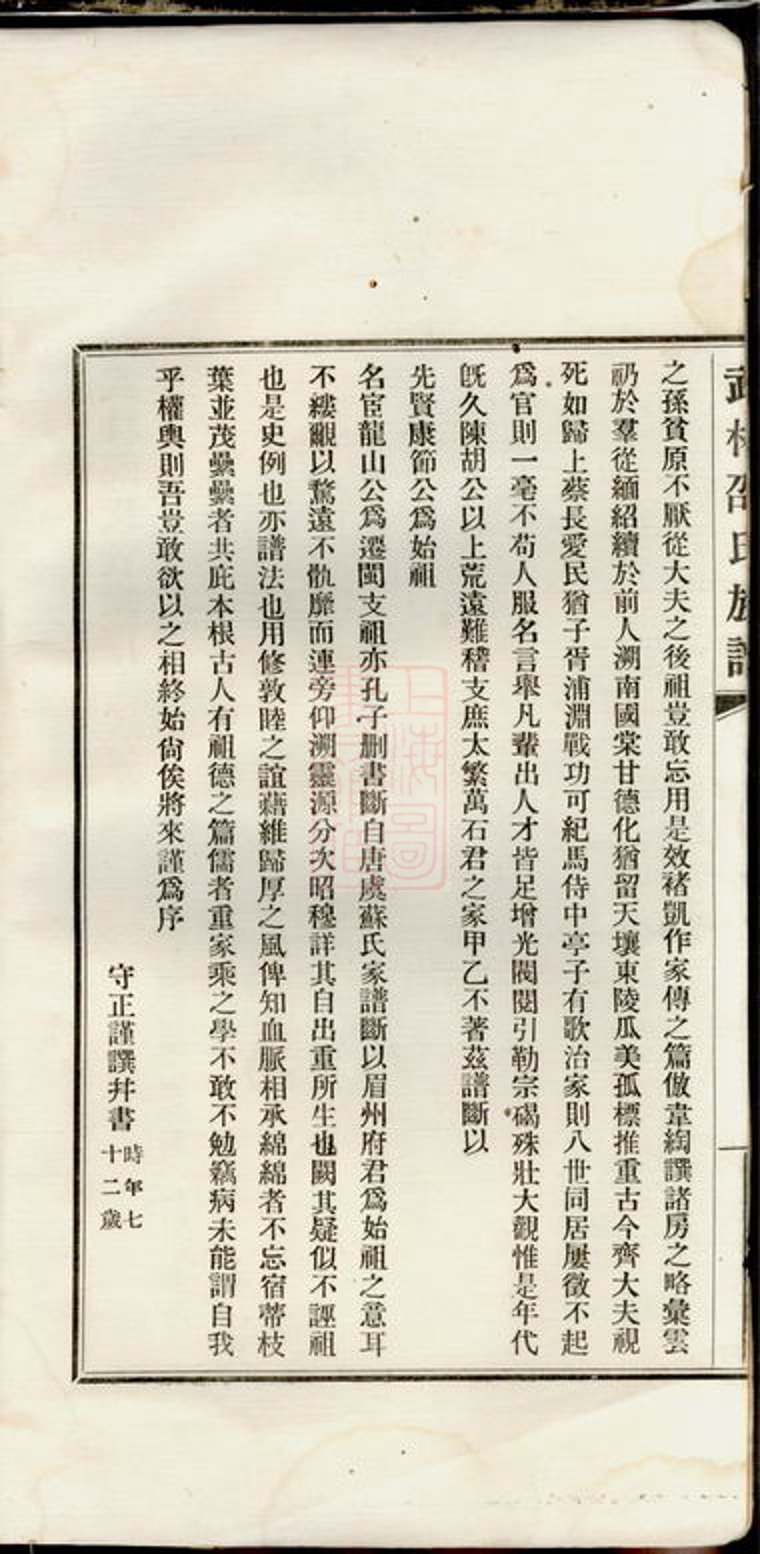 武林邵氏族譜
之孫貧原不厭從大夫之後祖豈敢忘用是效褚凱作家傳之篇倣韋綯譔諸房之略彙雲
礽於羣從緬紹續於前人溯南國棠甘德化猶留天壤東陵瓜美孤標推重古今齊大夫視
死如歸上蔡長愛民猶子胥浦淵戰功可紀馬侍中亭子有歌治家則八世同居屢徵不起
爲官則一毫不苟人服名言舉凡輩出人才皆足增光閥閱引勒宗碣殊壯大觀惟是年代
旣久陳胡公以上荒遠難稽支庶太繁萬石君之家甲乙不著茲譜斷以
先賢康節公爲始祖
名宦龍山公爲遷閩支祖亦孔子删書斷自唐虞蘇氏家譜斷以眉州府君爲始祖之意耳
不縷覼以騖遠不骫靡而連旁仰溯靈源分次昭穆詳其自出重所生也闕其疑似不誣祖
也是史例也亦譜法也用修敦睦之誼藉維歸厚之風俾知血脈相承綿綿者不忘宿蒂枝
葉並茂纍纍者共庇本根古人有祖德之篇儒者重家乘之學不敢不勉竊病未能謂自我
乎權輿則吾豈敢欲以之相終始尙俟將來謹爲序
守正謹譔幷書 時年七十二歲